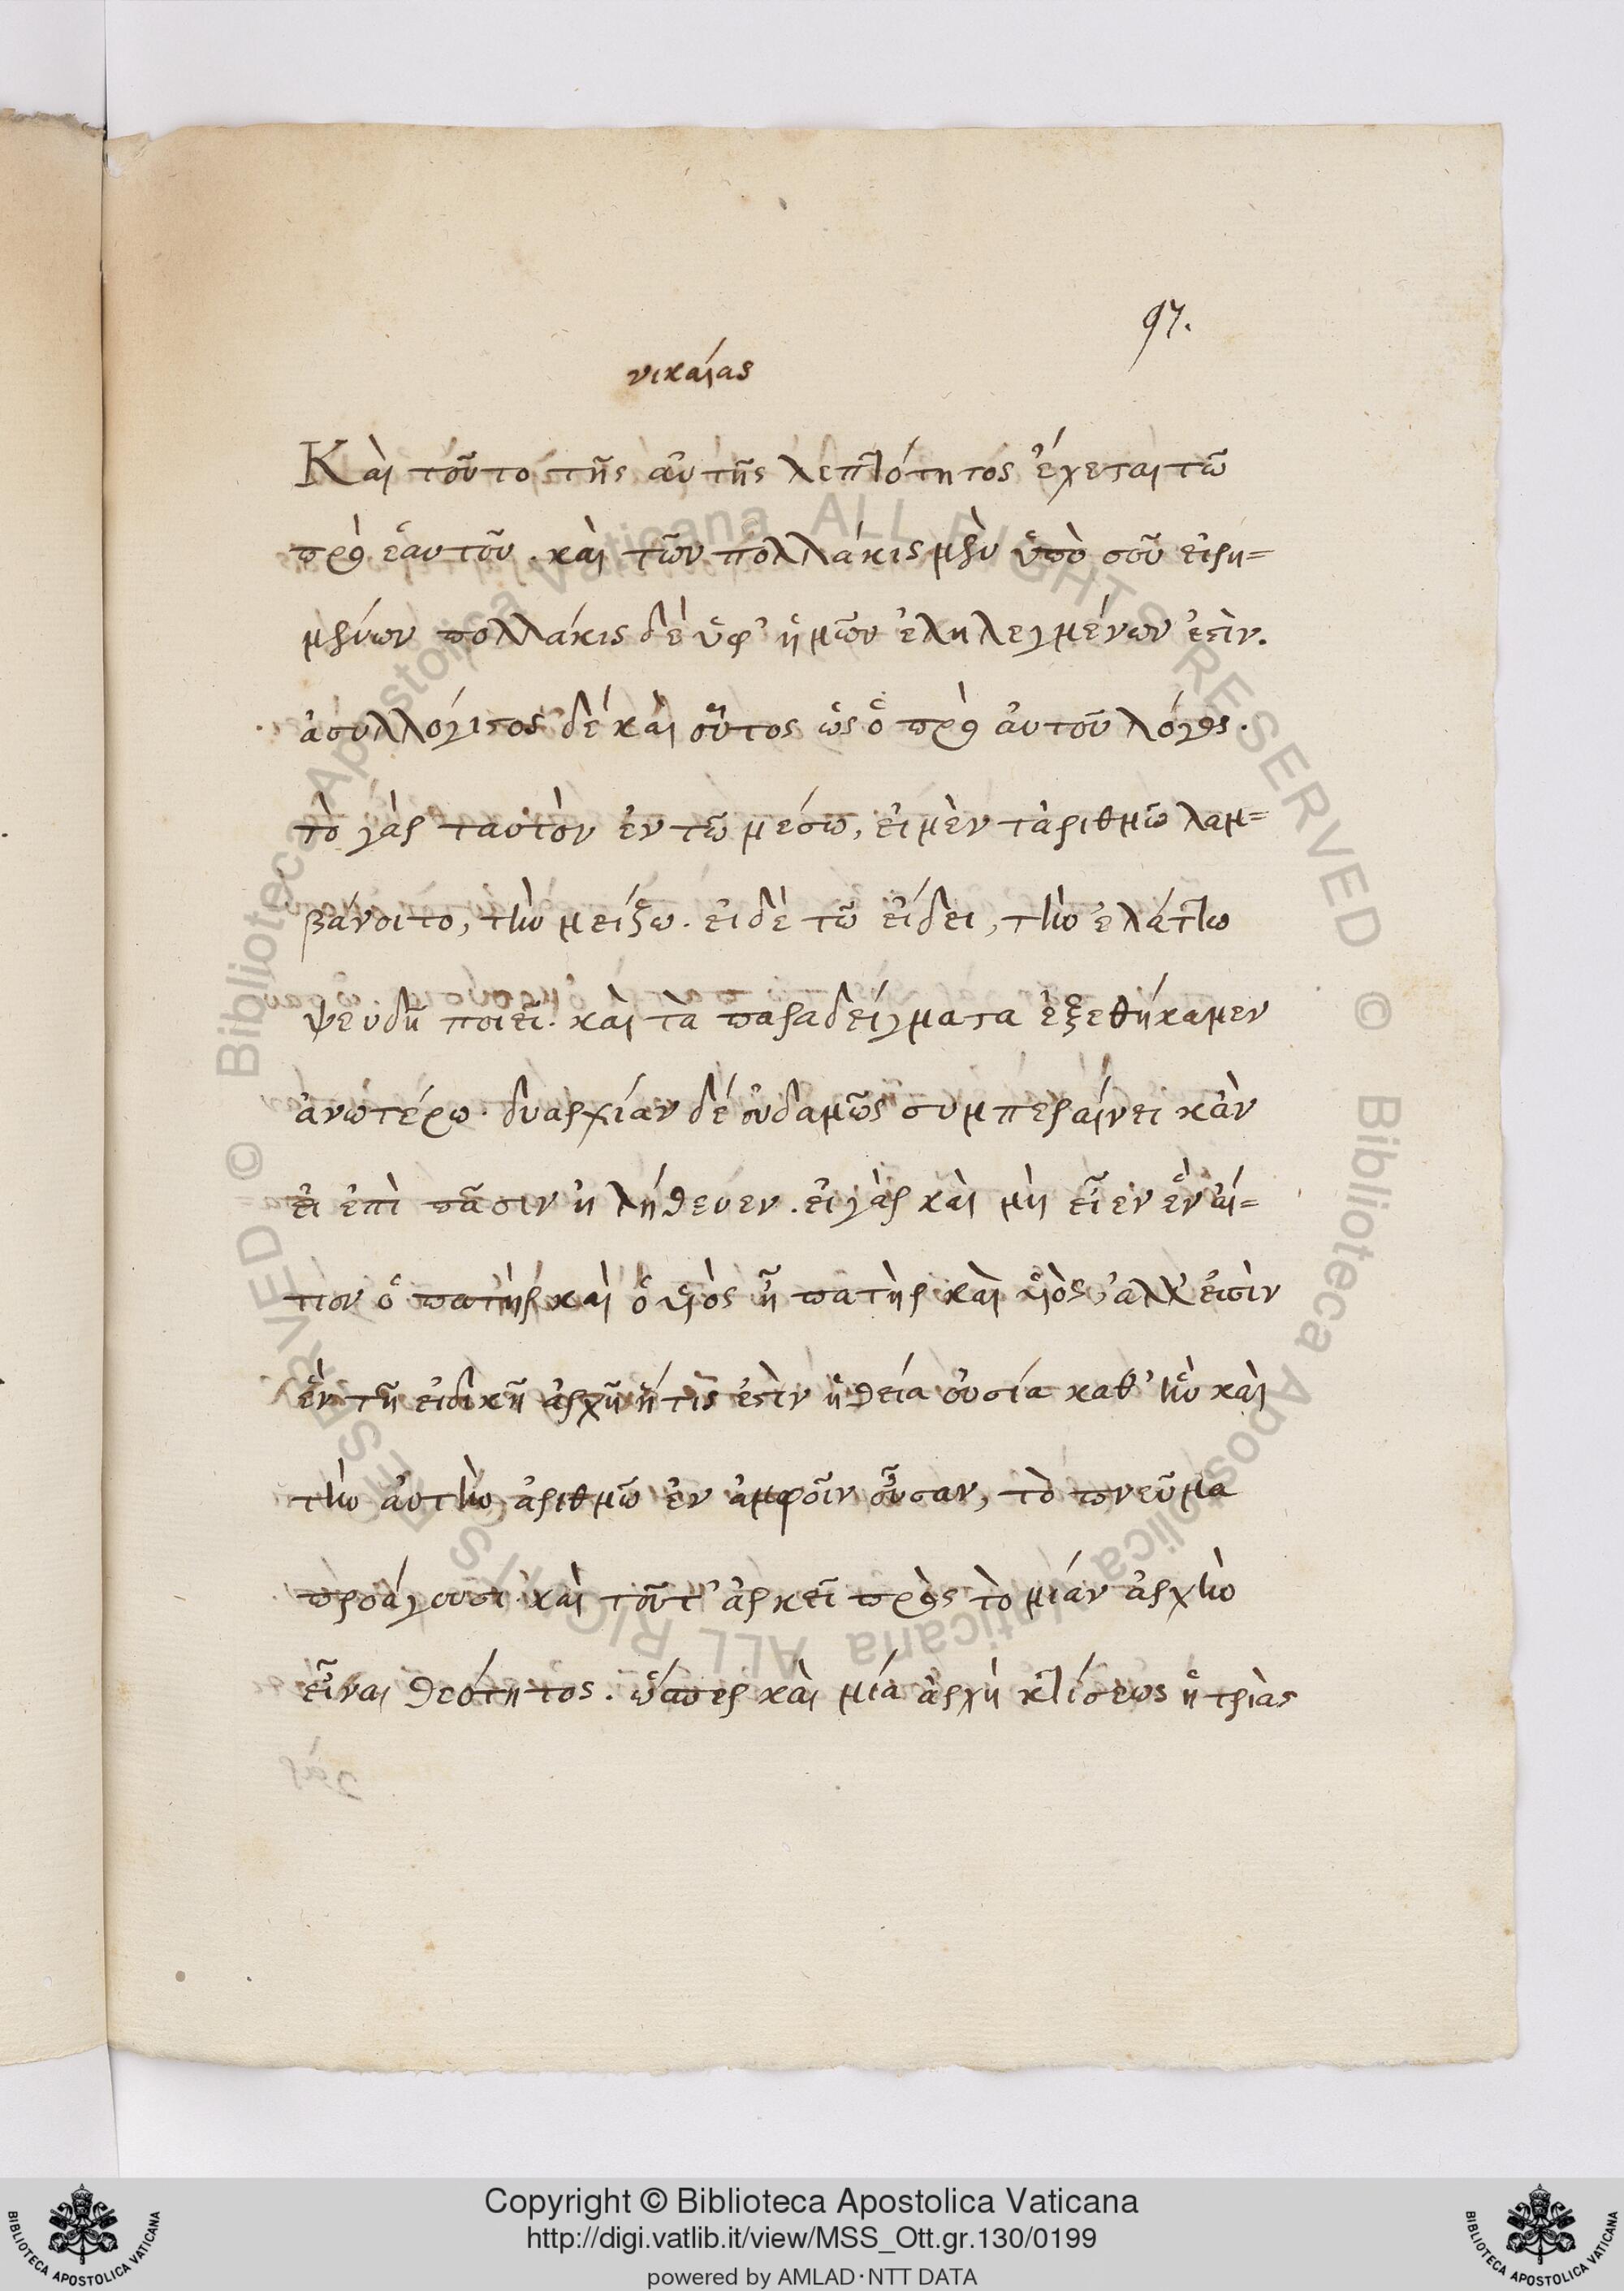 97.
νικαίας
Καὶ τοῦτο τῆς αὐτῆς λεπτότητος ἔχεται τῶ
πρὸ ἑαυτοῦ. καὶ τῶν πολλάκις μὲν ὑπὸ σοῦ εἰρη=
μένων πολλάκις δέ ὑφ' ἡμῶν ἐληλεγμένων ἐστὶν.
ἀσυλλόγιστος δέ καὶ οὗτος ὡς ὁ πρὸ αὐτοῦ λόγος.
τὸ γὰρ ταυτὸν ἐν τῶ μέσω, εἰ μὲν τἀριθμῶ λαμ=
βάνοιτο, τὴν μείζω. εἰ δὲ τῶ εἴδει, τὴν ἐλάττω
ψευδῆ ποιεῖ. καὶ τὰ παραδείγματα ἐξεθήκαμεν
ἀνωτέρω. δυαρχίαν δέ οὐδαμῶς συμπεραίνει κἂν
εἰ ἐπὶ πᾶσιν ἠλήθευεν. εἰ γὰρ καὶ μὴ εἶεν ἓν αἴ=
τιον ὁ πατὴρ καὶ ὁ υἱὸς ᾗ πατὴρ καὶ υἱὸς, ἀλλ' εἰσὶν
ἓν τῇ εἰδικῇ ἀρχῇ ἥτις ἐστὶν ἡ θεία οὐσία καθ' ἣν καὶ
τὴν αὐτὴν ἀριθμῶ ἐν ἀμφοῖν οὖσαν, τὸ πνεῦμα
προάγουσι. καὶ τοῦτ' ἀρκεῖ πρὸς τὸ μίαν ἀρχὴν
εἶναι θεότητος. ὥσπερ καὶ μία ἀρχὴ κτίσεως ἡ τριὰς
Copyright © Biblioteca Apostolica Vaticana
http://digi.vatlib.it/view/MSS_Ott.gr.130/0199
powered by AMLAD·NTT DATA